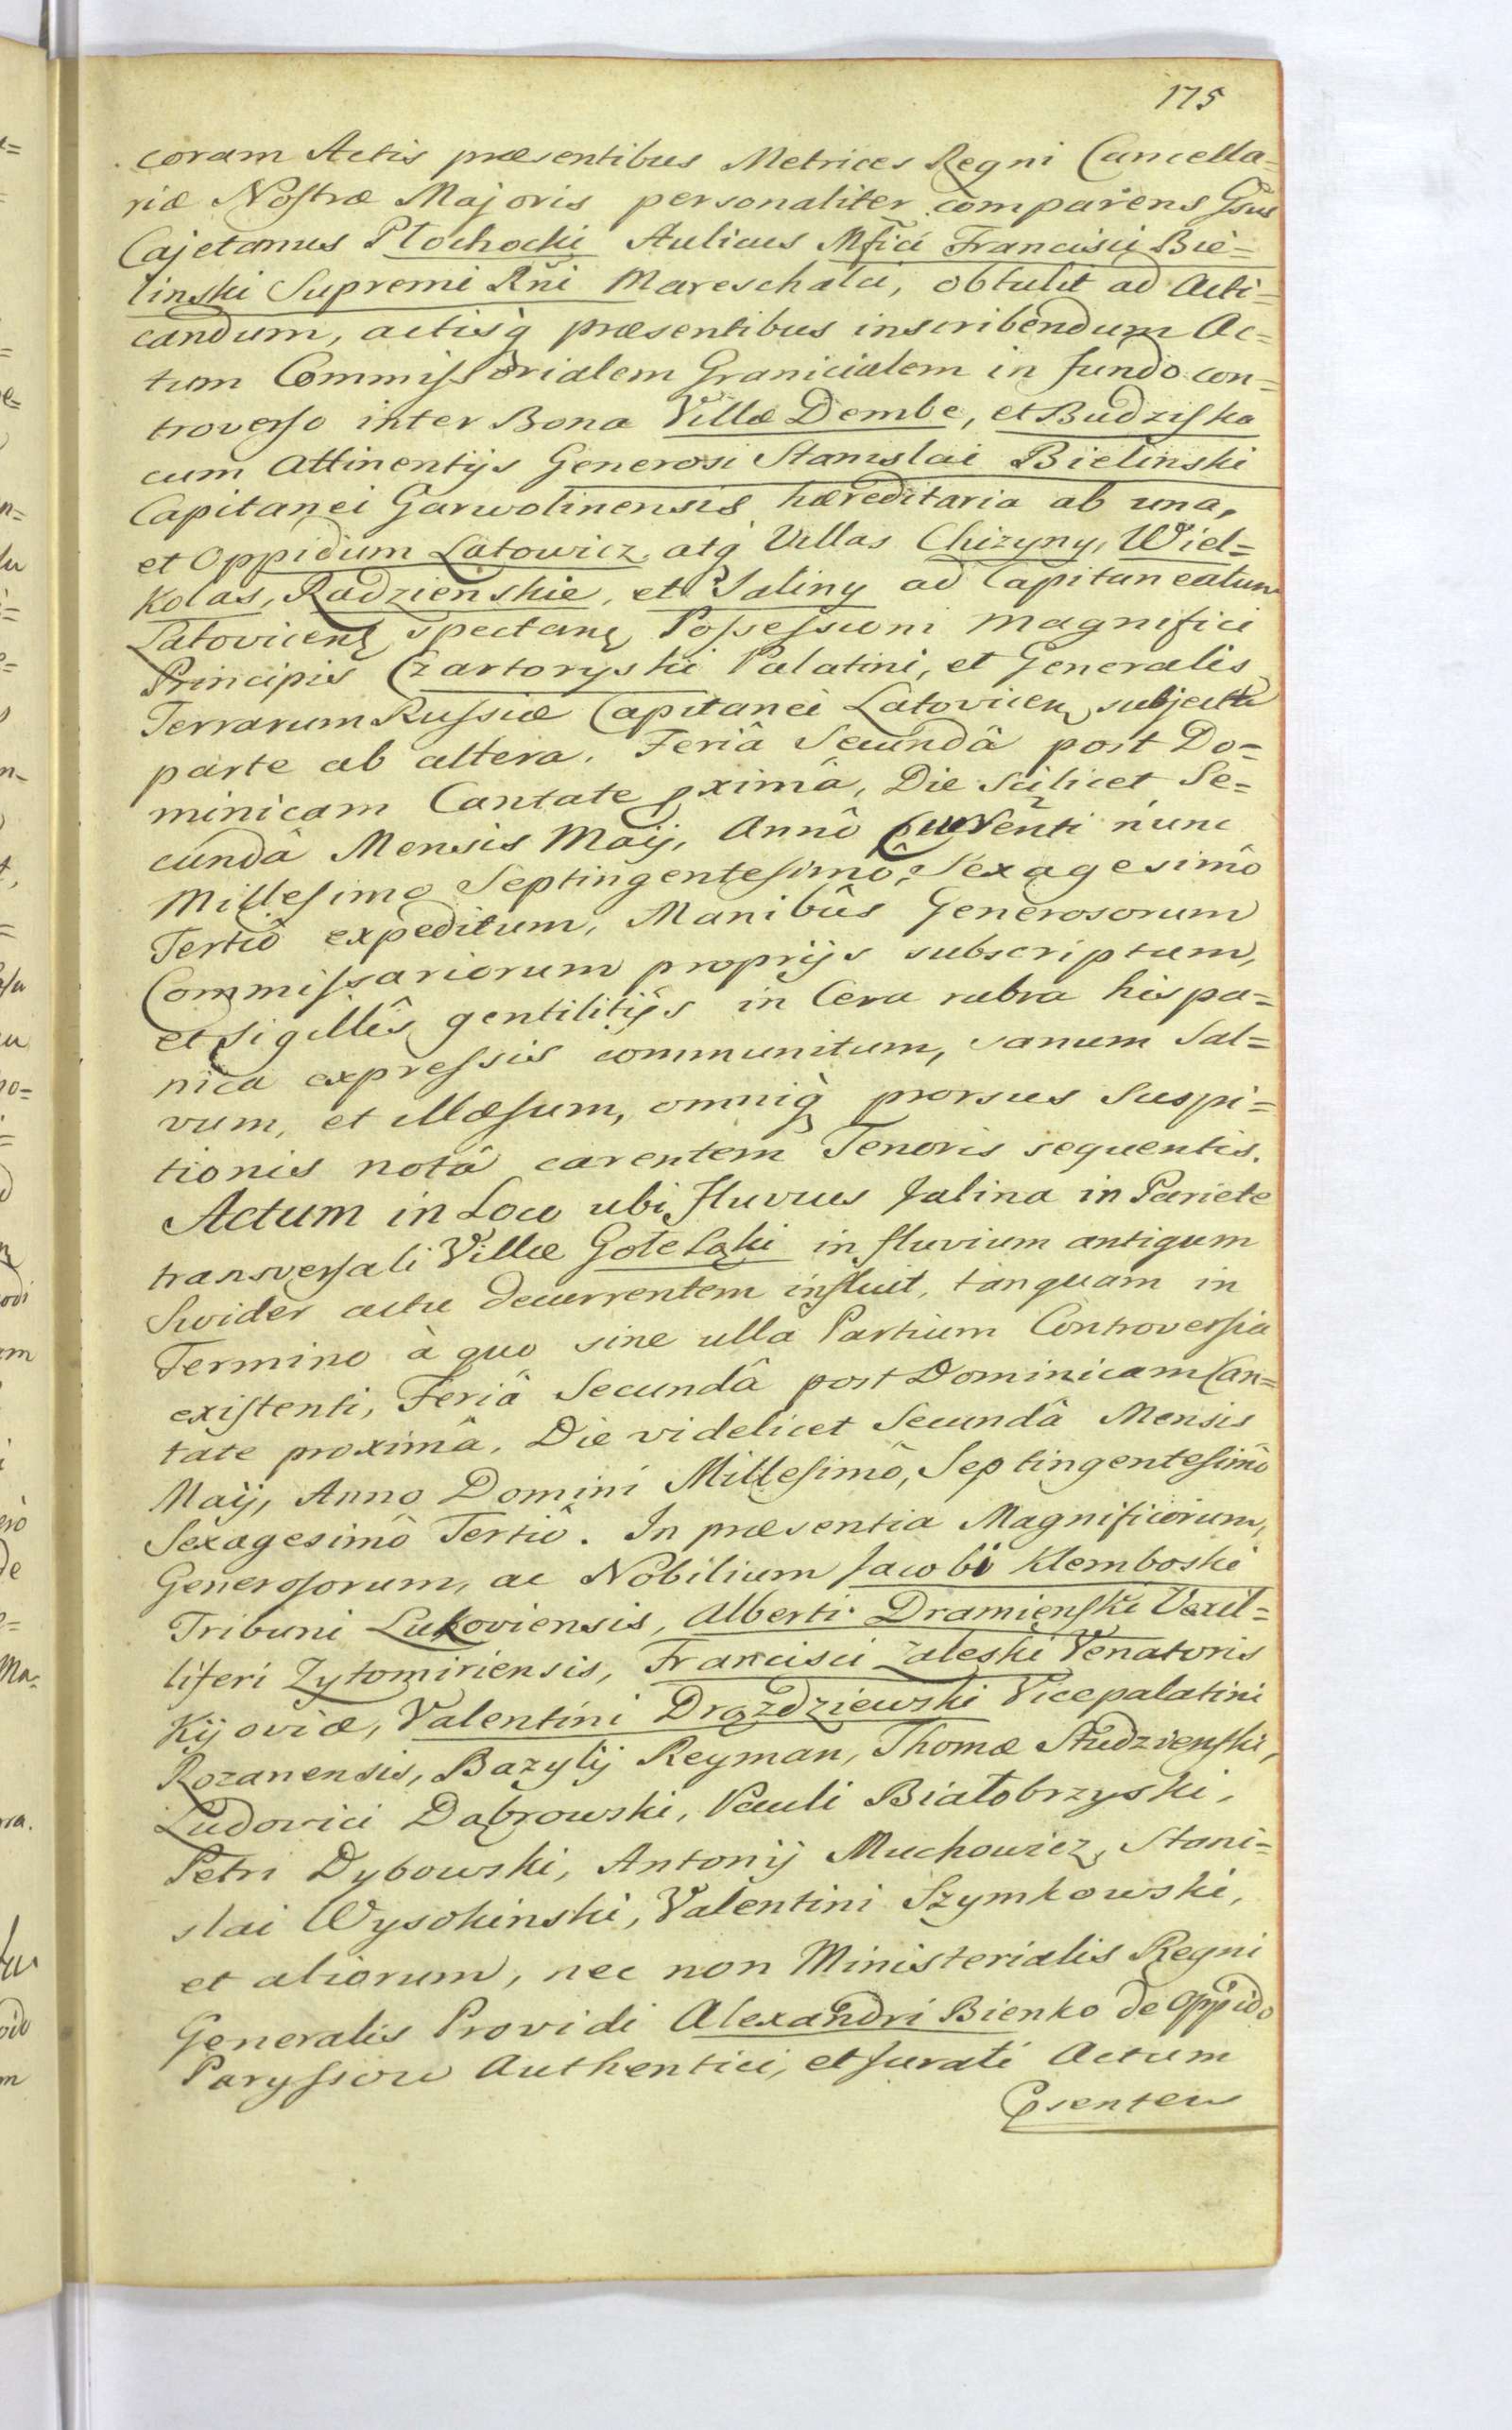 175
coram Actis præsentibus Metrices Regni Cancella=
riæ Nostræ Majoris personaliter comparens Gsus
Cajetanus Płochocki Aulicus Mfici Francisci Bie=
linski Supremi Rñi Mareschalci, obtulit ad Acti=
candum, actisq̀ præsentibus inscribendum Ac=
tum Commissorialem Granicialem in fundo con=
troverso inter Bona Villæ Dembe, et Budziska
cum Attinentijs Generosi Stanislai Bielinski
Capitanei Garwolinensis hæreditaria ab una,
et Oppidum Latowicz, atq̀ Villas Chizyny, Wiel=
kolas, Radzienskie, et Jaliny ad Capitaneatum
Latovicen spectan Possessioni Magnifici
Principis Czartoryski Palatini, et Generalis
Terrarum Russiæ Capitanei Latovicen subjecta
parte ab altera. Feriâ Secundâ post Do=
minicam Cantate pximâ, Die scilicet Se=
cundâ Mensis Maij, Annô Currenti nunc
Millesimo Septingentesimô, Sexagesimô
Tertiô expeditum, Manibûs Generosorum
Commissariorum proprijs subscriptum,
et sigillîs gentilitijs in Cera rubra hispa=
nica expressis communitum, sanum Sal=
vum, et illæsum, omniq̀ prorsus Suspi=
tionis notâ carentem Tenoris sequentis.
Actum in Loco ubi Fluvius Jalina in Pariete
transversali Villæ Gołełąki in fluvium antiqum
Swider actu decurrentem influit, tanquam in
Termino à quo sine ulla Partium Controversia
existenti, Feriâ Secundâ post Dominicam Can=
tate proximâ, Die videlicet Secundâ Mensis
Maij, Anno Domini Millesimô, Septingentesimô
Sexagesimô Tertiô. In præsentia Magnificorum,
Generosorum, ac Nobilium Jacobi Klemboski
Tribuni Lukoviensis, Alberti Dramienski Vexil=
liferi Zytomiriensis, Francisci Zaleski Venatoris
Kijoviæ, Valentini Drązdziewski Vicepalatini
Rozanensis, Bazylij Reyman, Thomæ Studzienski,
Ludovici Dąbrowski, Pauli Białobrzyski,
Petri Dybowski, Antonij Muchowicz, Stani=
slai Wysokinski, Valentini Szymkowski,
et aliorum, nec non Ministerialis Regni
Generalis Providi Alexandri Bienko de Oppido
Paryssow Authentici, et Jurati Actum
Psentem